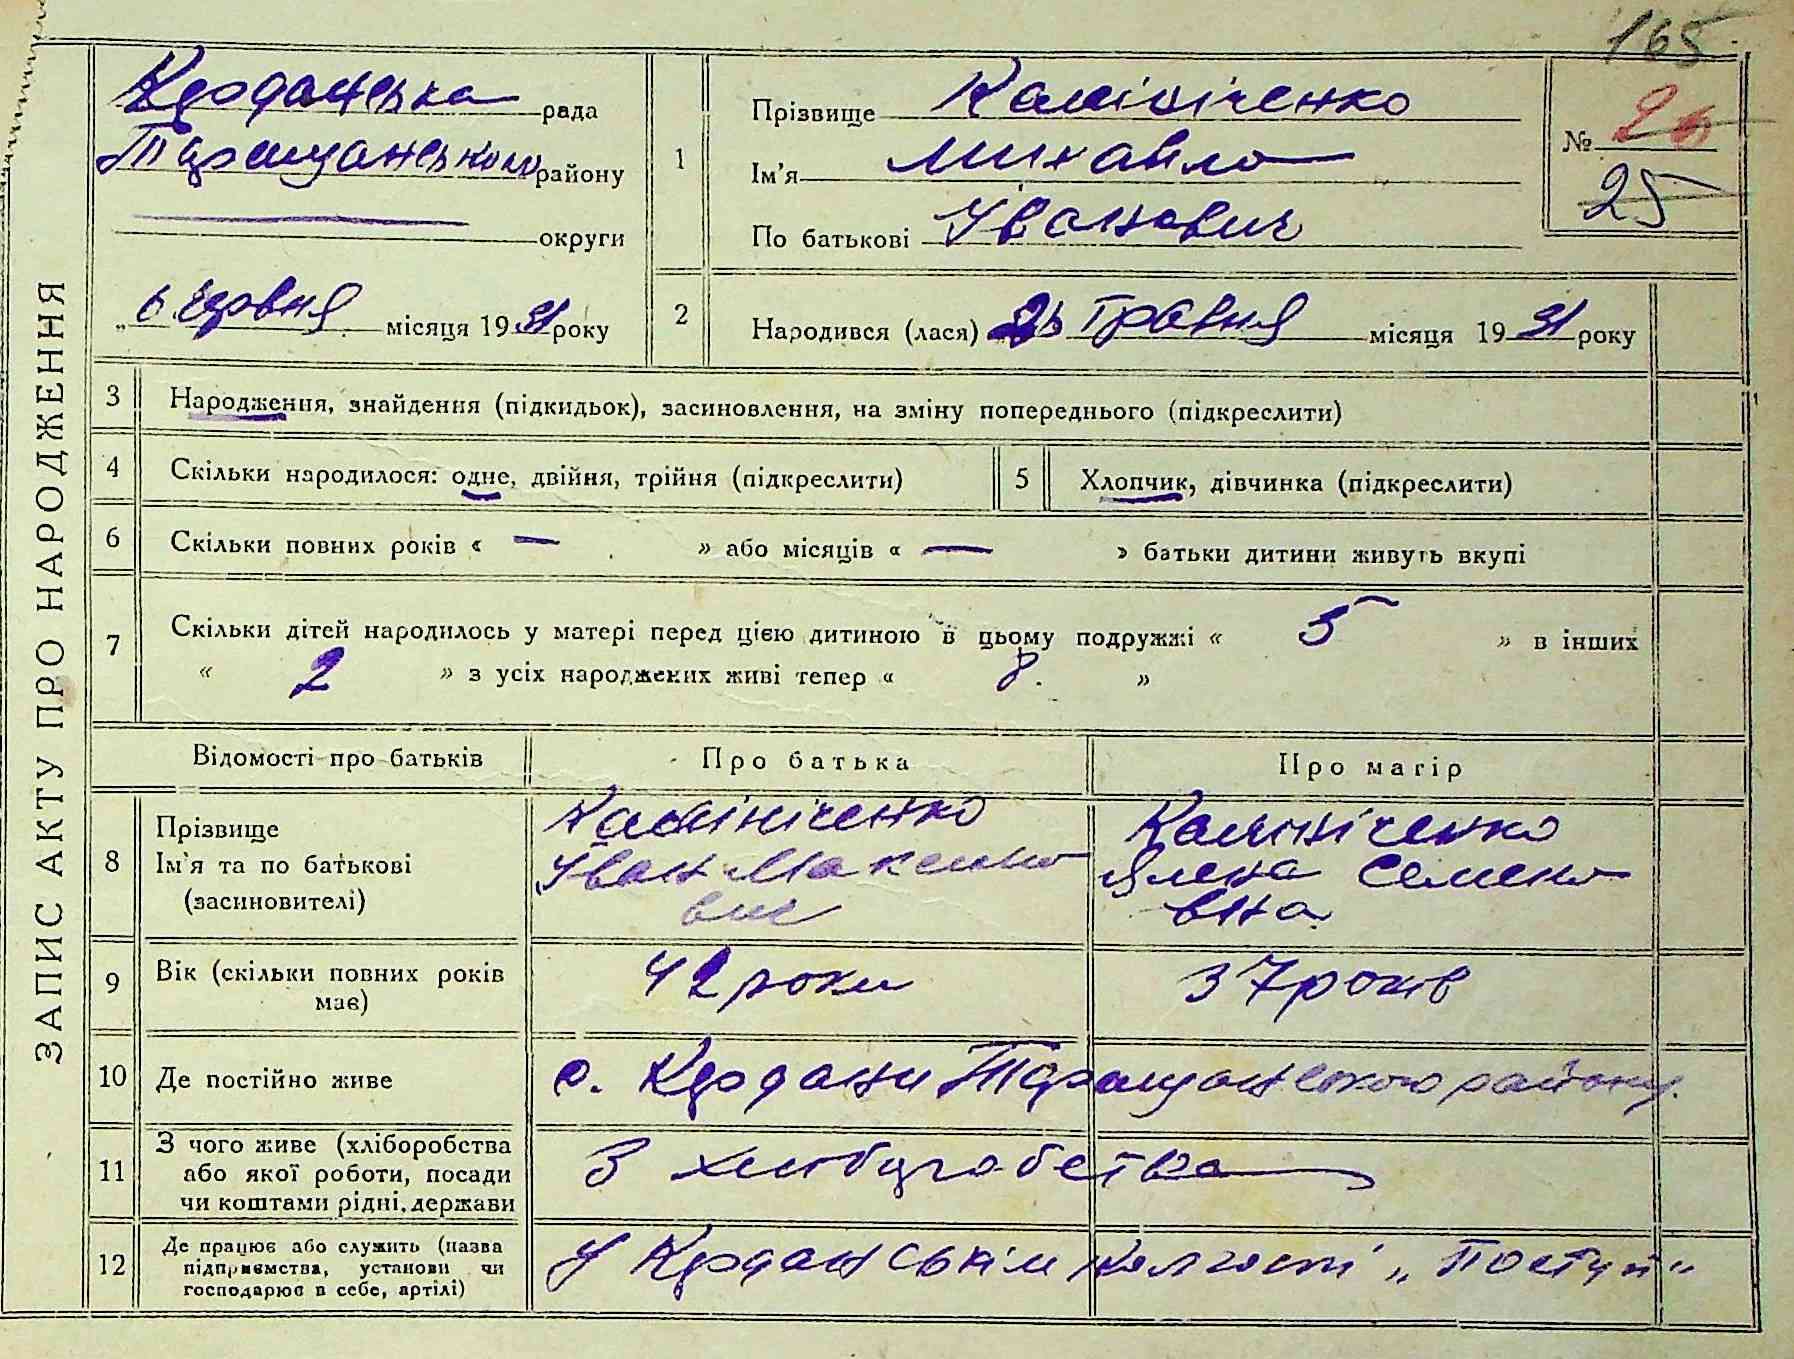 165
ЗАПИС АКТУ ПРО НАРОДЖЕННЯ
Керданська рада
Таращанського району
округи
„ 6 червня місяця 1931 року
1
Прізвище Калініченко
Ім'я Михайло
По батькові Іванович
№ 26
25
2
Народився (лася) 25 Травня місяця 1931 року
3 Народження, знайдення (підкидьок), засиновлення, на зміну попереднього (підкреслити)
4 Скільки народилося: одне, двійня, трійня (підкреслити) 5 Хлопчик, дівчинка (підкреслити)
6 Скільки повних років « — » або місяців « — » батьки дитини живуть вкупі
7 Скільки дітей народилось у матері перед цією дитиною в цьому подружжі « 5 » в інших
« 2 » з усіх народжених живі тепер « 8. »
Відомості про батьків Про батька Про матір
8 Прізвище
Ім'я та по батькові
(засиновителі)
Калініченко
Іван Максимо
вич
Калініченко
Ялена Семено
вна
9 Вік (скільки повних років
має)
42 роки 37 років
10 Де постійно живе с. Кердани Таращанського району.
11 З чого живе (хліборобства
або якої роботи, посади
чи коштами рідні, держави
З хліборобства
12 Де працює або служить (назва
підприємства, установи чи
господарює в себе, артілі)
У Керданськім колгоспі „Поступ"